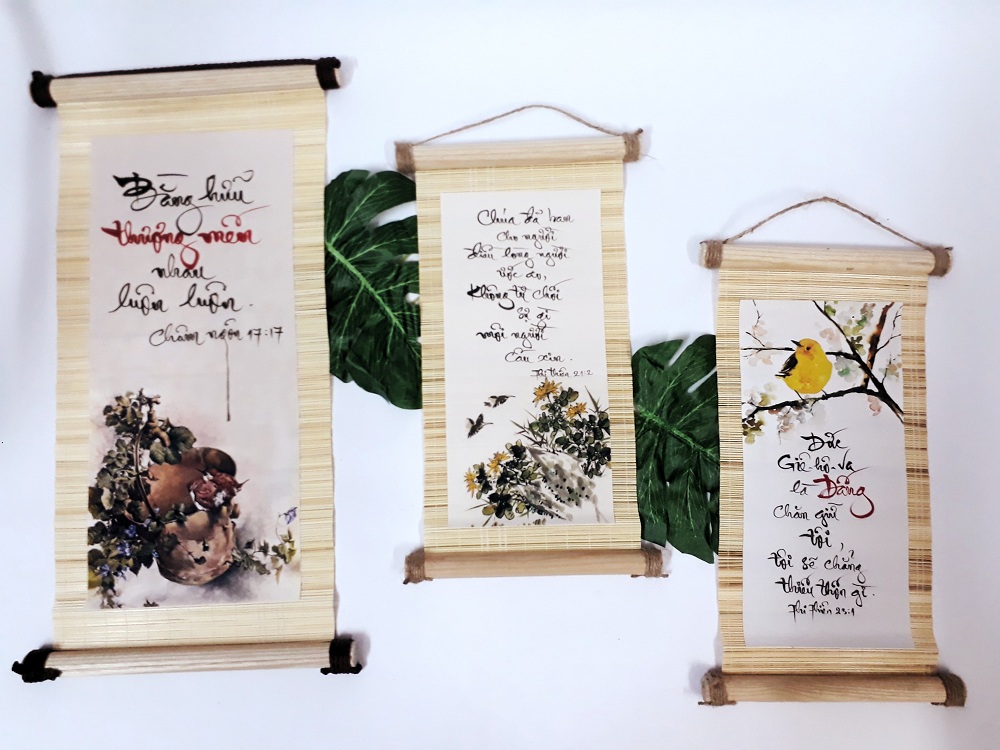 Bằng hữu
thương mến
nhau
luôn luôn.
Châm ngôn 17:17
Chúa đã ban
cho người
điều lòng người
ước ao,
Không từ chối
sự gì
môi người
cầu xin.
Thi thiên 21:2
Đức
Giê-hô-va
là Đấng
chăn giữ
tôi,
tôi sẽ chẳng
thiếu thốn gì.
Thi Thiên 23:1